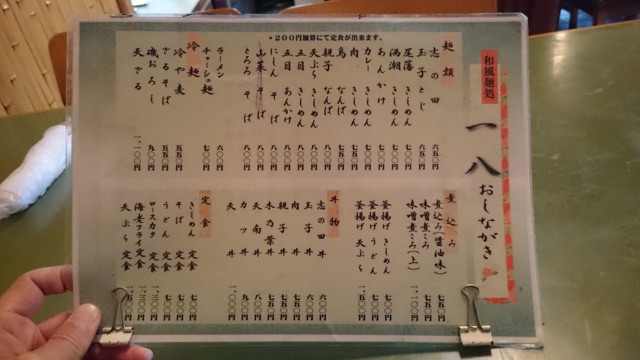 和風麺処
一八
おしながき
・200円増算にて定食が出来ます。
麺類
志の田 六五〇円
玉子とじ 六五〇円
尾藩きしめん 七〇〇円
満潮きしめん 七〇〇円
あんかけ 七〇〇円
カレーきしめん 七〇〇円
肉きしめん 七五〇円
鳥なんば 七五〇円
親子なんば 八〇〇円
天ぷらきしめん 八〇〇円
五目きしめん 八〇〇円
五目あんかけ 八〇〇円
にしんそば 八〇〇円
山菜そば 八〇〇円
とろろそば 八〇〇円
ラーメン 六〇〇円
チャーシュー麺 七〇〇円
冷麺
ざるそば 五五〇円
冷や麦 五五〇円
磯おろし 九〇〇円
天ざる 一、一〇〇円
煮込み
煮込み(醤油味) 七五〇円
味噌煮こみ 七五〇円
味噌煮こみ(上) 一、一〇〇円
釜揚げきしめん 七〇〇円
釜揚げうどん 七〇〇円
釜揚げ天ぷら 一、一五〇円
丼物
志の田丼 六〇〇円
玉子丼 六〇〇円
肉丼 七五〇円
親子丼 七五〇円
木乃葉丼 七五〇円
天南丼 八〇〇円
カツ丼 九〇〇円
天丼 一、〇〇〇円
定食
きしめん定食 七〇〇円
そば定食 七〇〇円
うどん定食 七〇〇円
ロースカツ定食 一、三〇〇円
海老フライ定食 一、三〇〇円
天ぷら定食 一、五〇〇円